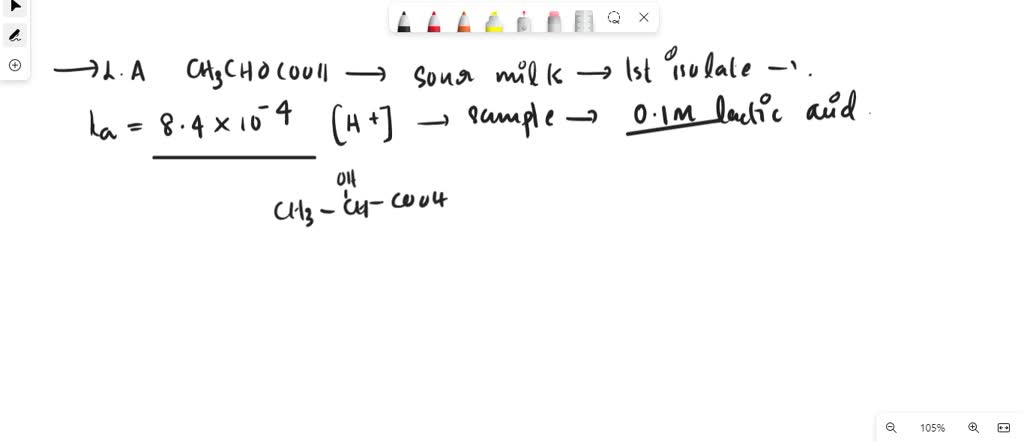 → L.A CH3CHOCOOH → sour milk → 1st isolate →.
ka = 8.4 × 10^-4 [H+] → sample → 0.1M lactic acid.
OH
CH3 - CH - COOH
105%